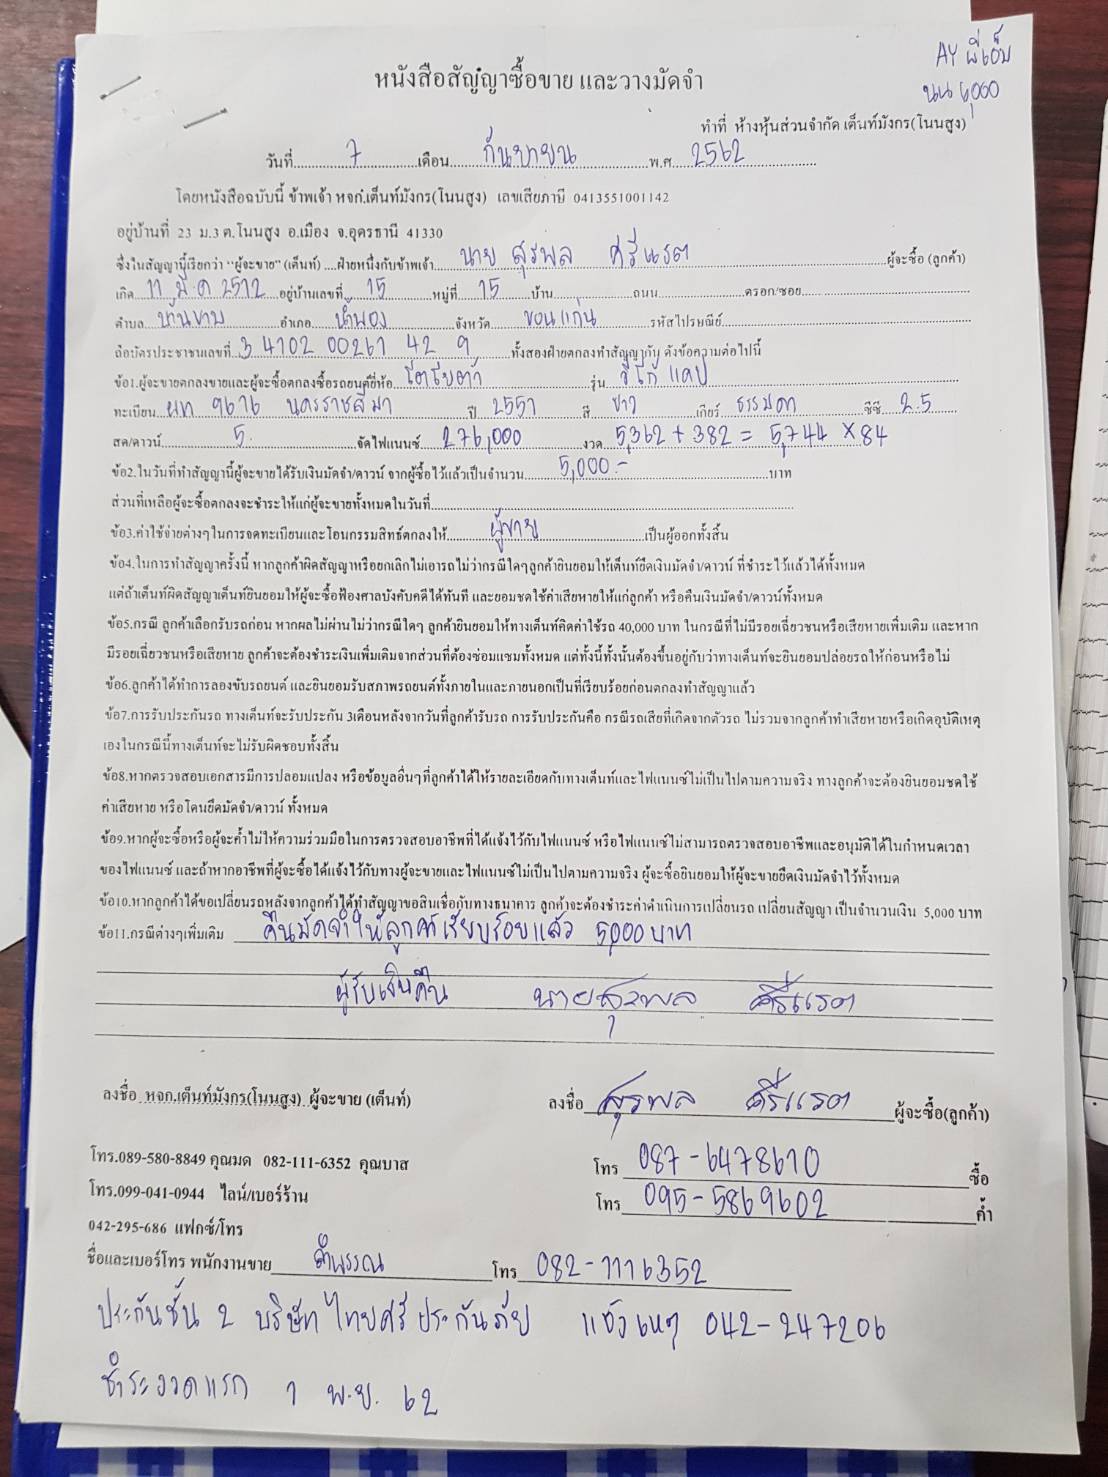 AY พี่เอ็ม
นน 6,000
หนังสือสัญญาซื้อขาย และวางมัดจำ
ทำที่ ห้างหุ้นส่วนจำกัด เต็นท์มังกร(โนนสูง)
วันที่ 7 เดือน กันยายน พ.ศ. 2562
โดยหนังสือฉบับนี้ ข้าพเจ้า หจก.เต็นท์มังกร(โนนสูง) เลขเสียภาษี 0413551001142
อยู่บ้านที่ 23 ม.3 ต.โนนสูง อ.เมือง จ.อุดรธานี 41330
ซึ่งในสัญญานี้เรียกว่า "ผู้จะขาย" (เต็นท์) ....ฝ่ายหนึ่งกับข้าพเจ้า นาย สุรพล ศรีแรต ผู้จะซื้อ (ลูกค้า)
เกิด 11 มี.ค 2512 อยู่บ้านเลขที่ 15 หมู่ที่ 15 บ้าน ถนน ตรอก/ซอย
ตำบล บ้านขาม อำเภอ น้ำพอง จังหวัด ขอนแก่น รหัสไปรษณีย์
ถือบัตรประชาชนเลขที่ 3 4102 00261 42 9 ทั้งสองฝ่ายตกลงทำสัญญากัน ดังข้อความต่อไปนี้
ข้อ1.ผู้จะขายตกลงขายและผู้จะซื้อตกลงซื้อรถยนต์ยี่ห้อ โตโยต้า รุ่น วีโก้ แคป
ทะเบียน ผท 9676 นครราชสีมา ปี 2551 สี ขาว เกียร์ ธรรมดา ซีซี 2.5
สด/ดาวน์ 5 จัดไฟแนนซ์ 276,000 งวด 5,362 + 382 = 5,744 × 84
ข้อ2.ในวันที่ทำสัญญานี้ผู้จะขายได้รับเงินมัดจำ/ดาวน์ จากผู้ซื้อไว้แล้วเป็นจำนวน 5,000.- บาท
ส่วนที่เหลือผู้จะซื้อตกลงจะชำระให้แก่ผู้จะขายทั้งหมดในวันที่
ข้อ3.ค่าใช้จ่ายต่างๆในการจดทะเบียนและโอนกรรมสิทธิ์ตกลงให้ ผู้ขาย เป็นผู้ออกทั้งสิ้น
ข้อ4.ในการทำสัญญาครั้งนี้ หากลูกค้าผิดสัญญาหรือยกเลิกไม่เอารถไม่ว่ากรณีใดๆลูกค้ายินยอมให้เต็นท์ยึดเงินมัดจำ/ดาวน์ ที่ชำระไว้แล้วได้ทั้งหมด
แต่ถ้าเต็นท์ผิดสัญญาเต็นท์ยินยอมให้ผู้จะซื้อฟ้องศาลบังคับคดีได้ทันที และยอมชดใช้ค่าเสียหายให้แก่ลูกค้า หรือคืนเงินมัดจำ/ดาวน์ทั้งหมด
ข้อ5.กรณี ลูกค้าเลือกรับรถก่อน หากผลไม่ผ่านไม่ว่ากรณีใดๆ ลูกค้ายินยอมให้ทางเต็นท์คิดค่าใช้รถ 40,000 บาท ในกรณีที่ไม่มีรอยเฉี่ยวชนหรือเสียหายเพิ่มเติม และหาก
มีรอยเฉี่ยวชนหรือเสียหาย ลูกค้าจะต้องชำระเงินเพิ่มเติมจากส่วนที่ต้องซ่อมแซมทั้งหมด แต่ทั้งนี้ทั้งนั้นต้องขึ้นอยู่กับว่าทางเต็นท์จะยินยอมปล่อยรถให้ก่อนหรือไม่
ข้อ6.ลูกค้าได้ทำการลองขับรถยนต์ และยินยอมรับสภาพรถยนต์ทั้งภายในและภายนอกเป็นที่เรียบร้อยก่อนตกลงทำสัญญาแล้ว
ข้อ7.การรับประกันรถ ทางเต็นท์จะรับประกัน 3เดือนหลังจากวันที่ลูกค้ารับรถ การรับประกันคือ กรณีรถเสียที่เกิดจากตัวรถ ไม่รวมจากลูกค้าทำเสียหายหรือเกิดอุบัติเหตุ
เองในกรณีนี้ทางเต็นท์จะไม่รับผิดชอบทั้งสิ้น
ข้อ8.หากตรวจสอบเอกสารมีการปลอมแปลง หรือข้อมูลอื่นๆที่ลูกค้าได้ให้รายละเอียดกับทางเต็นท์และไฟแนนซ์ไม่เป็นไปตามความจริง ทางลูกค้าจะต้องยินยอมชดใช้
ค่าเสียหาย หรือโดนยึดมัดจำ/ดาวน์ ทั้งหมด
ข้อ9.หากผู้จะซื้อหรือผู้จะค้ำไม่ให้ความร่วมมือในการตรวจสอบอาชีพที่ได้แจ้งไว้กับไฟแนนซ์ หรือไฟแนนซ์ไม่สามารถตรวจสอบอาชีพและอนุมัติได้ในกำหนดเวลา
ของไฟแนนซ์ และถ้าหากอาชีพที่ผู้จะซื้อได้แจ้งไว้กับทางผู้จะขายและไฟแนนซ์ไม่เป็นไปตามความจริง ผู้จะซื้อยินยอมให้ผู้จะขายยึดเงินมัดจำไว้ทั้งหมด
ข้อ10.หากลูกค้าได้ขอเปลี่ยนรถหลังจากลูกค้าได้ทำสัญญาขอสินเชื่อกับทางธนาคาร ลูกค้าจะต้องชำระค่าดำเนินการเปลี่ยนรถ เปลี่ยนสัญญา เป็นจำนวนเงิน 5,000 บาท
ข้อ11.กรณีต่างๆเพิ่มเติม คืนมัดจำให้ลูกค้าเรียบร้อยแล้ว 5,000 บาท
ผู้รับเงินคืน นายสุรพล ศรีแรต
ลงชื่อ หจก.เต็นท์มังกร(โนนสูง) ผู้จะขาย (เต็นท์) ลงชื่อ สุรพล ศรีแรต ผู้จะซื้อ(ลูกค้า)
โทร.089-580-8849 คุณมด 082-111-6352 คุณบาส โทร 087-6478610 ซื้อ
โทร.099-041-0944 ไลน์/เบอร์ร้าน โทร 095-5869602 ค้ำ
042-295-686 แฟกซ์/โทร
ชื่อและเบอร์โทร พนักงานขาย คำพรรณ โทร 082-1116352
ประกันชั้น 2 บริษัท ไทยศรี ประกันภัย แจ้งเหตุ 042-247206
ชำระงวดแรก 1 พ.ย. 62